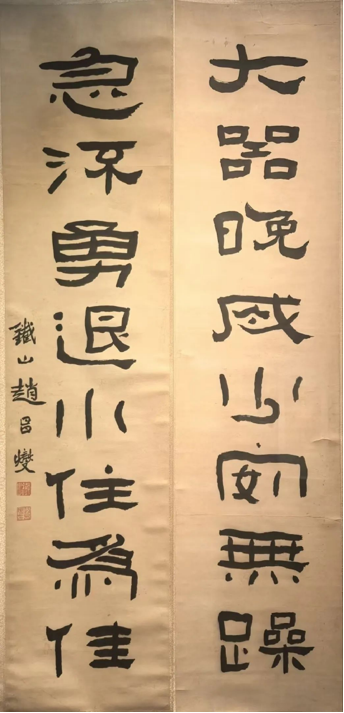 大器晚成少安無躁
急流勇退小住為佳
鐵山趙昌燮